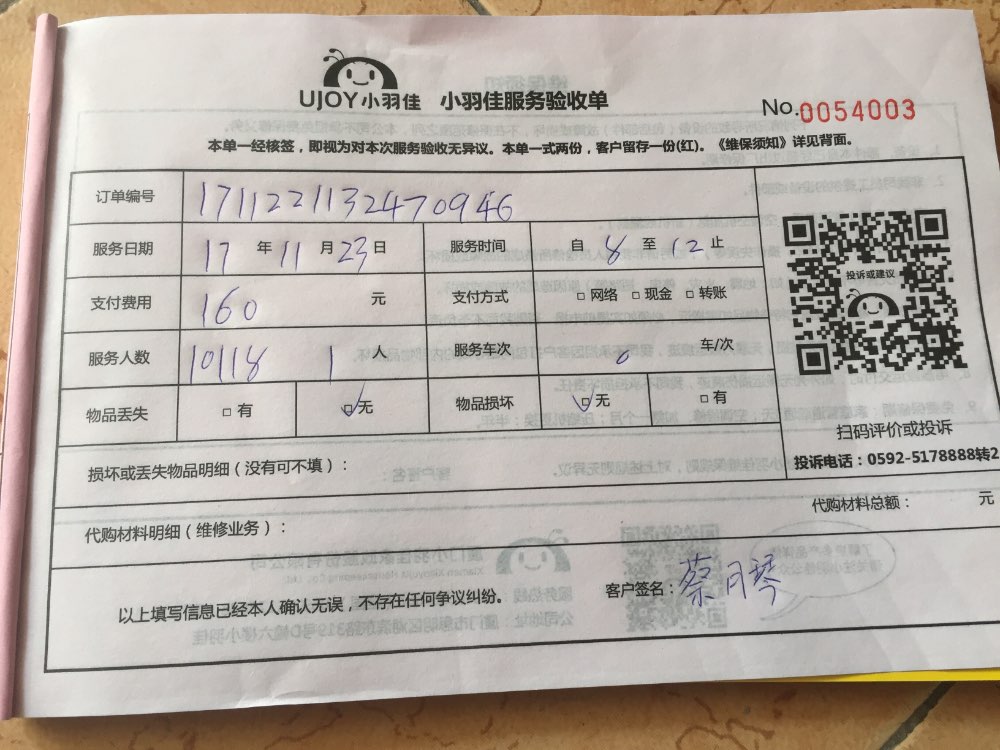 UJOY小羽佳 小羽佳服务验收单
No.0054003
本单一经核签，即视为对本次服务验收无异议。本单一式两份，客户留存一份(红)。《维保须知》详见背面。
订单编号 1711221132470946
服务日期 17 年 11 月 23 日 服务时间 自 8 至 12 止
支付费用 160 元 支付方式 □网络 □现金 □转账
服务人数 10118 1 人 服务车次 0 车/次
物品丢失 □有 ☑无 物品损坏 ☑无 □有
投诉或建议
扫码评价或投诉
投诉电话：0592-5178888转2
损坏或丢失物品明细（没有可不填）：
代购材料总额： 元
代购材料明细（维修业务）：
客户签名：蔡月琴
以上填写信息已经本人确认无误，不存在任何争议纠纷。